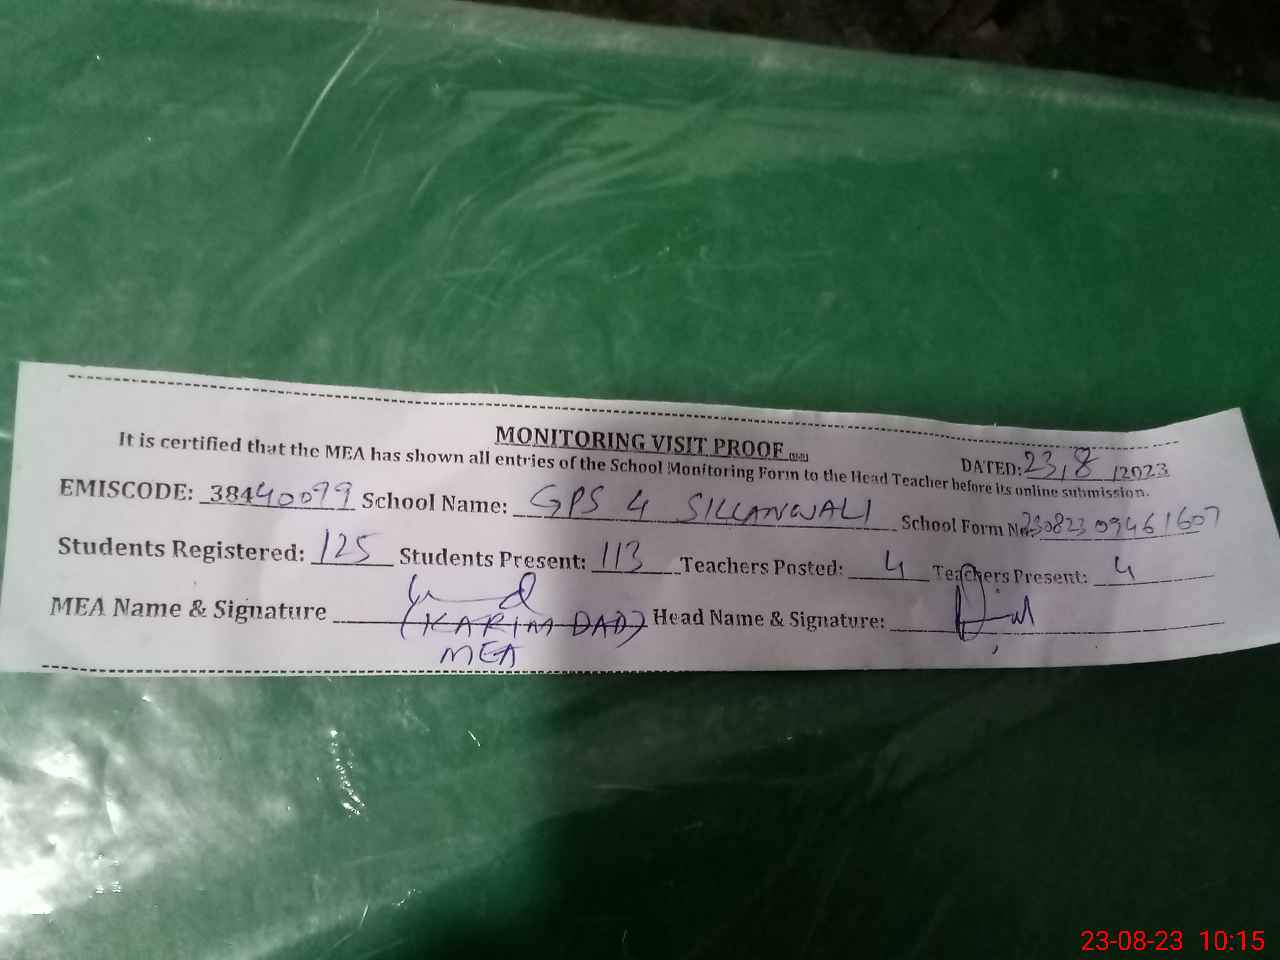 MONITORING VISIT PROOF
DATED: 23/8/2023
It is certified that the MEA has shown all entries of the School Monitoring Form to the Head Teacher before its online submission.
EMISCODE: 38440099 School Name: GPS 4 SILLANWALI School Form No: 23082309461607
Students Registered: 125 Students Present: 113 Teachers Posted: 4 Teachers Present: 4
MEA Name & Signature (KARIM DAD) Head Name & Signature:
MEA
23-08-23 10:15